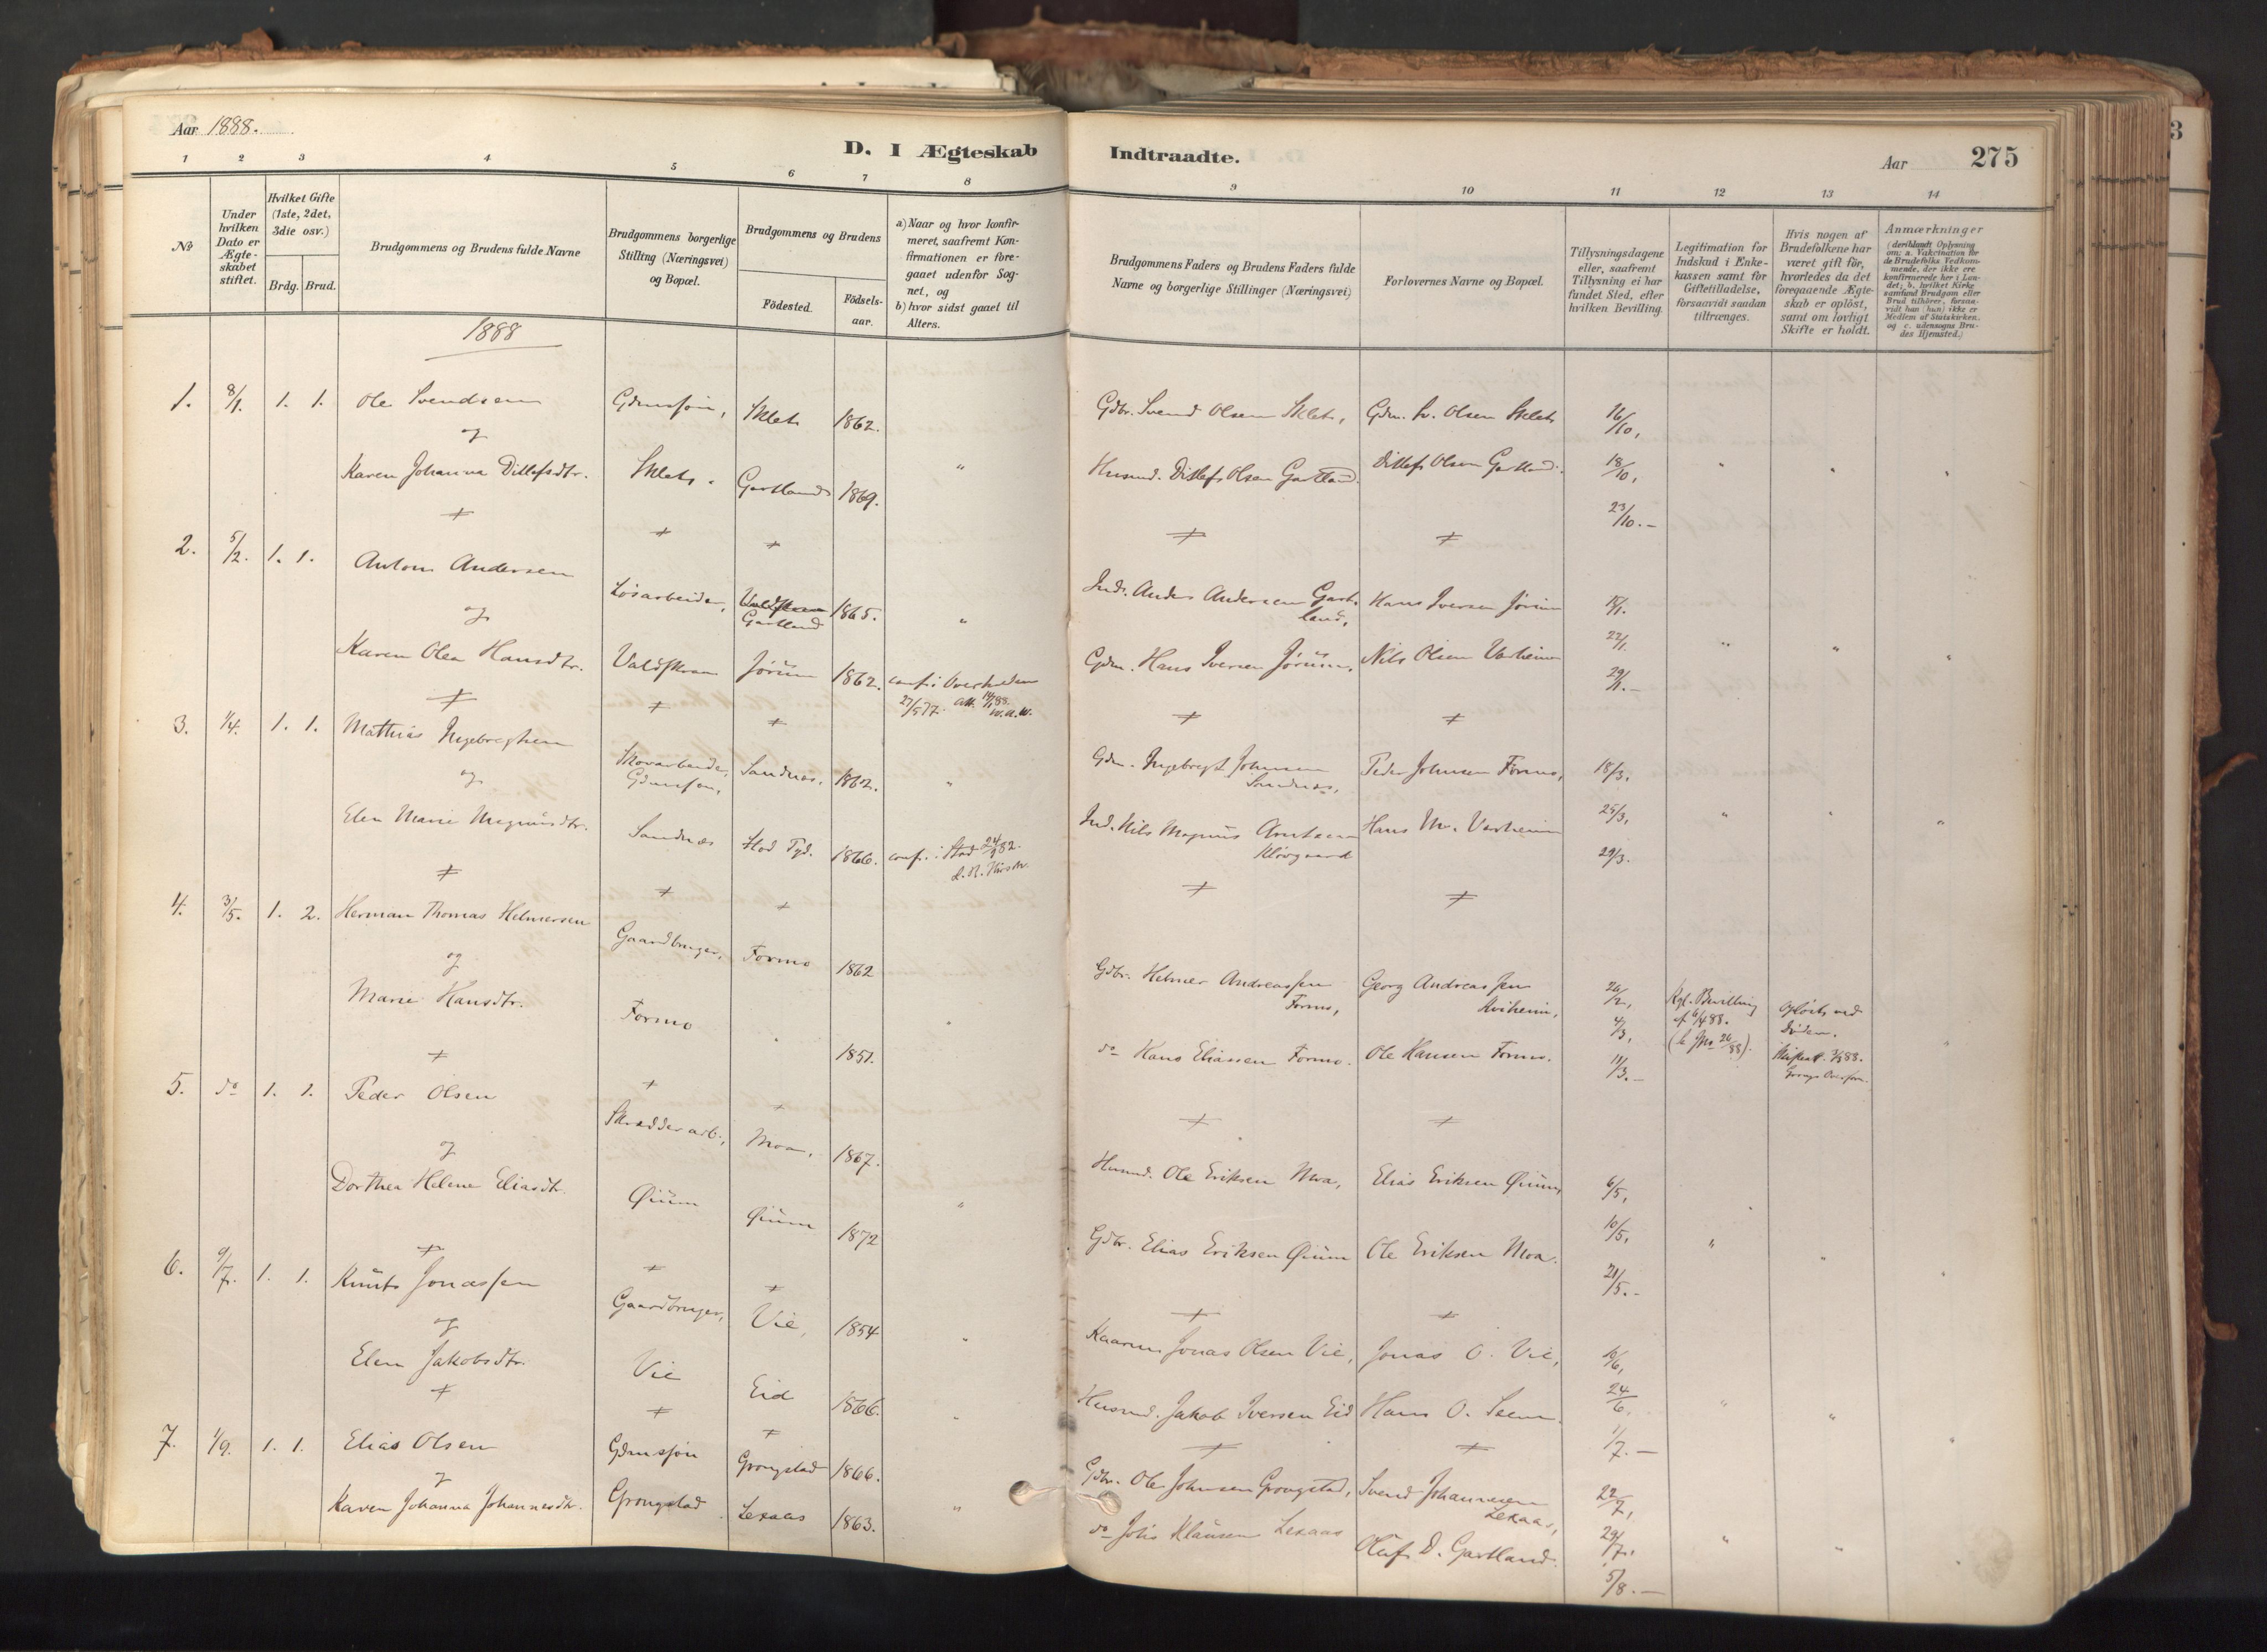 Aar 1888.
D. I Ægteskab Indtraadte.
Aar 275
1 2 3 4 5 6 7 8 9 10 11 12 13 14
№
Under hvilken Dato er Ægteskabet stiftet.
Hvilket Gifte (1ste, 2det, 3die osv.)
Brdg. Brud.
Brudgommens og Brudens fulde Navne
Brudgommens borgerlige Stilling (Næringsvei) og Bopæl.
Brudgommens og Brudens
Födested.
Födsels-aar.
a) Naar og hvor konfirmeret, saafremt Konfirmationen er foregaaet udenfor Sognet, og
b) hvor sidst gaaet til Alters.
Brudgommens Faders og Brudens Faders fulde Navne og borgerlige Stillinger (Næringsvei)
Forlovernes Navne og Bopæl.
Tillysningsdagene eller, saafremt Tillysning ei har fundet Sted, efter hvilken Bevilling.
Legitimation for Indskud i Enkekassen samt for Giftetilladelse, forsaavidt saadan tiltrænges.
Hvis nogen af Brudefolkene har været gift för, hvorledes da det foregaaende Ægteskab er oplöst, samt om lovligt Skifte er holdt.
Anmærkninger
(deriblandt Oplysning om: a. Vakcination for de Brudefolks Vedkommende, der ikke ere konfirmerede her i Landet; b. hvilket Kirkesamfund Brudgom eller Brud tilhörer, forsaavidt han (hun) ikke er Medlem af Statskirken, og c. udensogns Brudes Hjemsted.)
1888
1. 8/1. 1. 1. Ole Svendsen Gdmssøn, Sklet 1862. Gdbr. Svend Olsen Sklet, Gdm. Sv. Olsen Sklet 16/10,
og
Karen Johanna Ditlefsdtr. Sklet. Gartland 1869. " Husmd. Ditlef Olsen Gartland. Ditlef Olsen Gartland. 18/10, " " "
23/10.-
2. 5/2. 1. 1. Anton Andersen Løsarbeider, Gartland 1865. " Inds. Anders Andersen Gartland, Hans Iversen Jørum 15/1.
og 22/1. " " "
Karen Olea Hansdtr. Valdskran Jørum 1862. conf. i Overhalden 27/5 77. Att. 14/1 88. Gdm. Hans Iversen Jørum. Nils Olsen Varheim 29/1.-
3. 1/4. 1. 1. Mathias Ingebregtsen Skovarbeider, Gdmssøn, Sandnæs, 1862. " Gdm. Ingebregt Johnsen Sandnæs, Peder Johnsen Formo, 18/3.
og 25/3, " " "
Elen Marie Magnusdtr. Sandnæs Stod Pgd. 1866. conf. i Stod 24/9 82. Ind. Nils Magnus Arntsen Kløvgaard Hans M. Varheim 29/3.
4. 3/5. 1. 2. Herman Thomas Helmersen Gaardbruger, Formo 1862 " Gdbr. Helmer Andreassen Formo, Georg Andreassen Kviheim, 26/2,
og 4/3, Kgl. Bevilling af 6/4 88. Opløst ved Døden. "
Marie Hansdtr. Formo 1851. do Hans Eliassen Formo. Ole Hansen Formo. 11/3.-
5. do 1. 1. Peder Olsen Skrædderarb., Moa, 1867. Husmd. Ole Eriksen Moa, Elias Eriksen Øium, 6/5,
og 10/5, " " "
Dorthea Helene Eliasdtr. Øium Øium 1872 " Gdbr. Elias Eriksen Øium Ole Eriksen Moa. 21/5.-
6. 9/7. 1. 1. Knut Jonassen Gaardbruger, Vie, 1854 " Kaarm. Jonas Olsen Vie, Jonas O. Vie,
og 24/6. " "
Elen Jakobsdtr. Vie Eid 1866. " Husmd. Jakob Iversen Eid Hans O. Seem. 1/7.-
7. 1/9. 1. 1. Elias Olsen Gdmssøn Grongstad 1866. Gdbr. Ole Johnsen Grongstad, Svend Johannesen Lexaas, 22/7,
og 29/7. " " "
Karen Johanna Johannesdtr. Grongstad Lexaas 1863. " do Johs Klausen Lexaas Oluf D. Gartland. 5/8.-